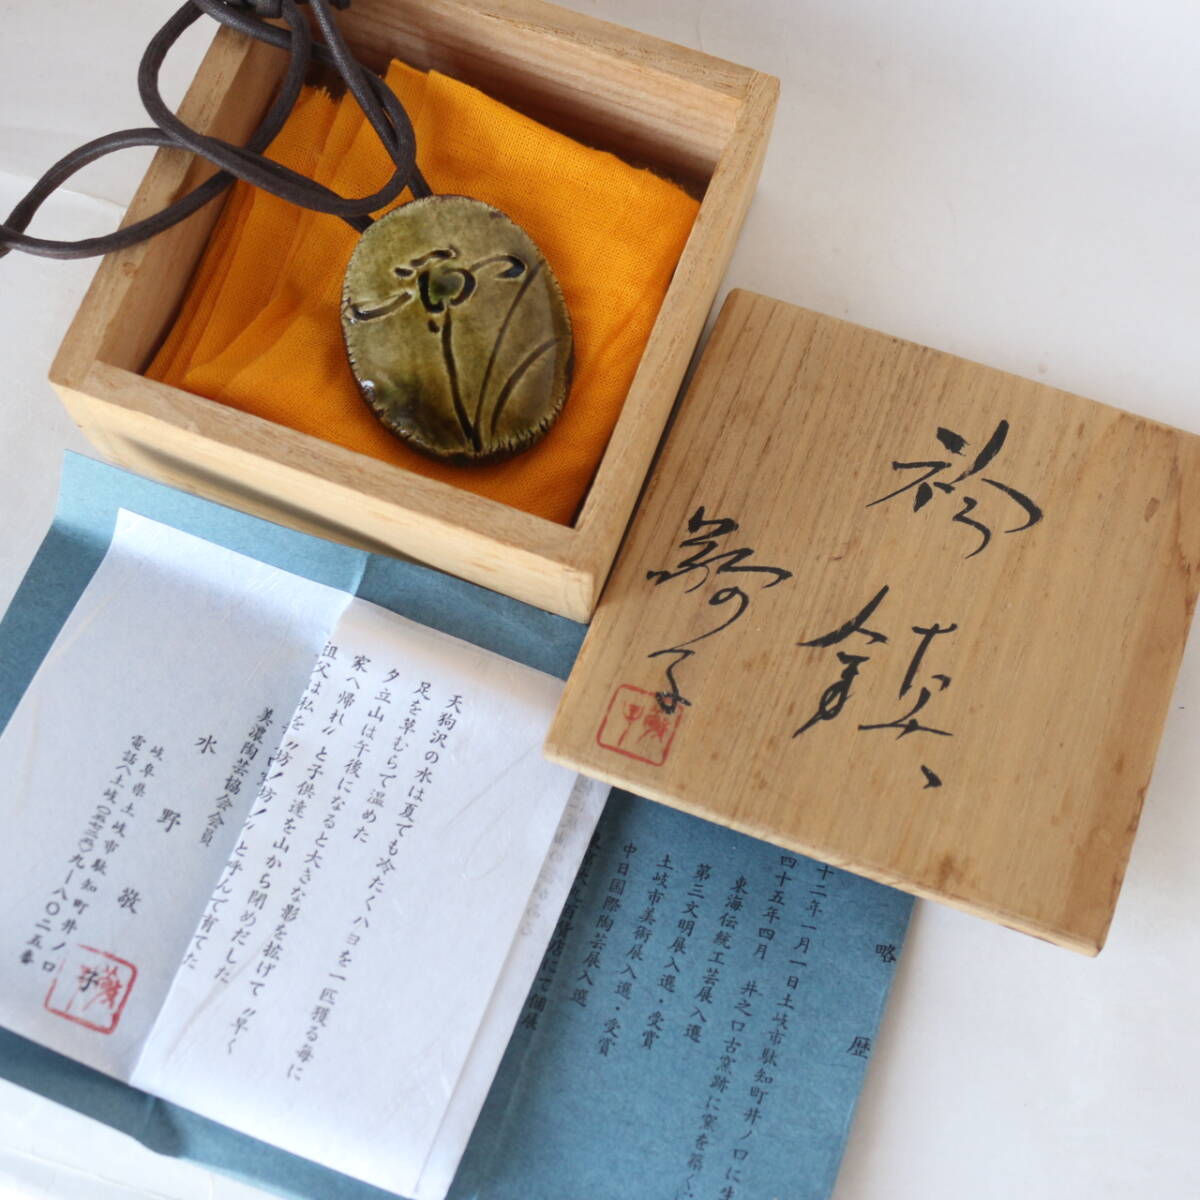 衿鎮
敬子
天狗沢の水は夏でも冷たくハヨを一匹獲る毎に
足を草むらで温めた
夕立山は午後になると大きな影を拡げて〃早く
家へ帰れ〃と子供達を山から閉めだした
祖父は私を〃坊!坊!〃と呼んで育てた
美濃陶芸協会会員
水野敬子
岐阜県土岐市駄知町井ノ口
電話〈土岐(〇五七二)〉九-八〇二五番
略歴
十二年一月一日土岐市駄知町井ノ口に生
四十五年四月 井之口古窯跡に窯を築く
東海伝統工芸展入選
第三文明展入選
土岐市美術展入選・受賞
中日国際陶芸展入選・受賞
にて個展